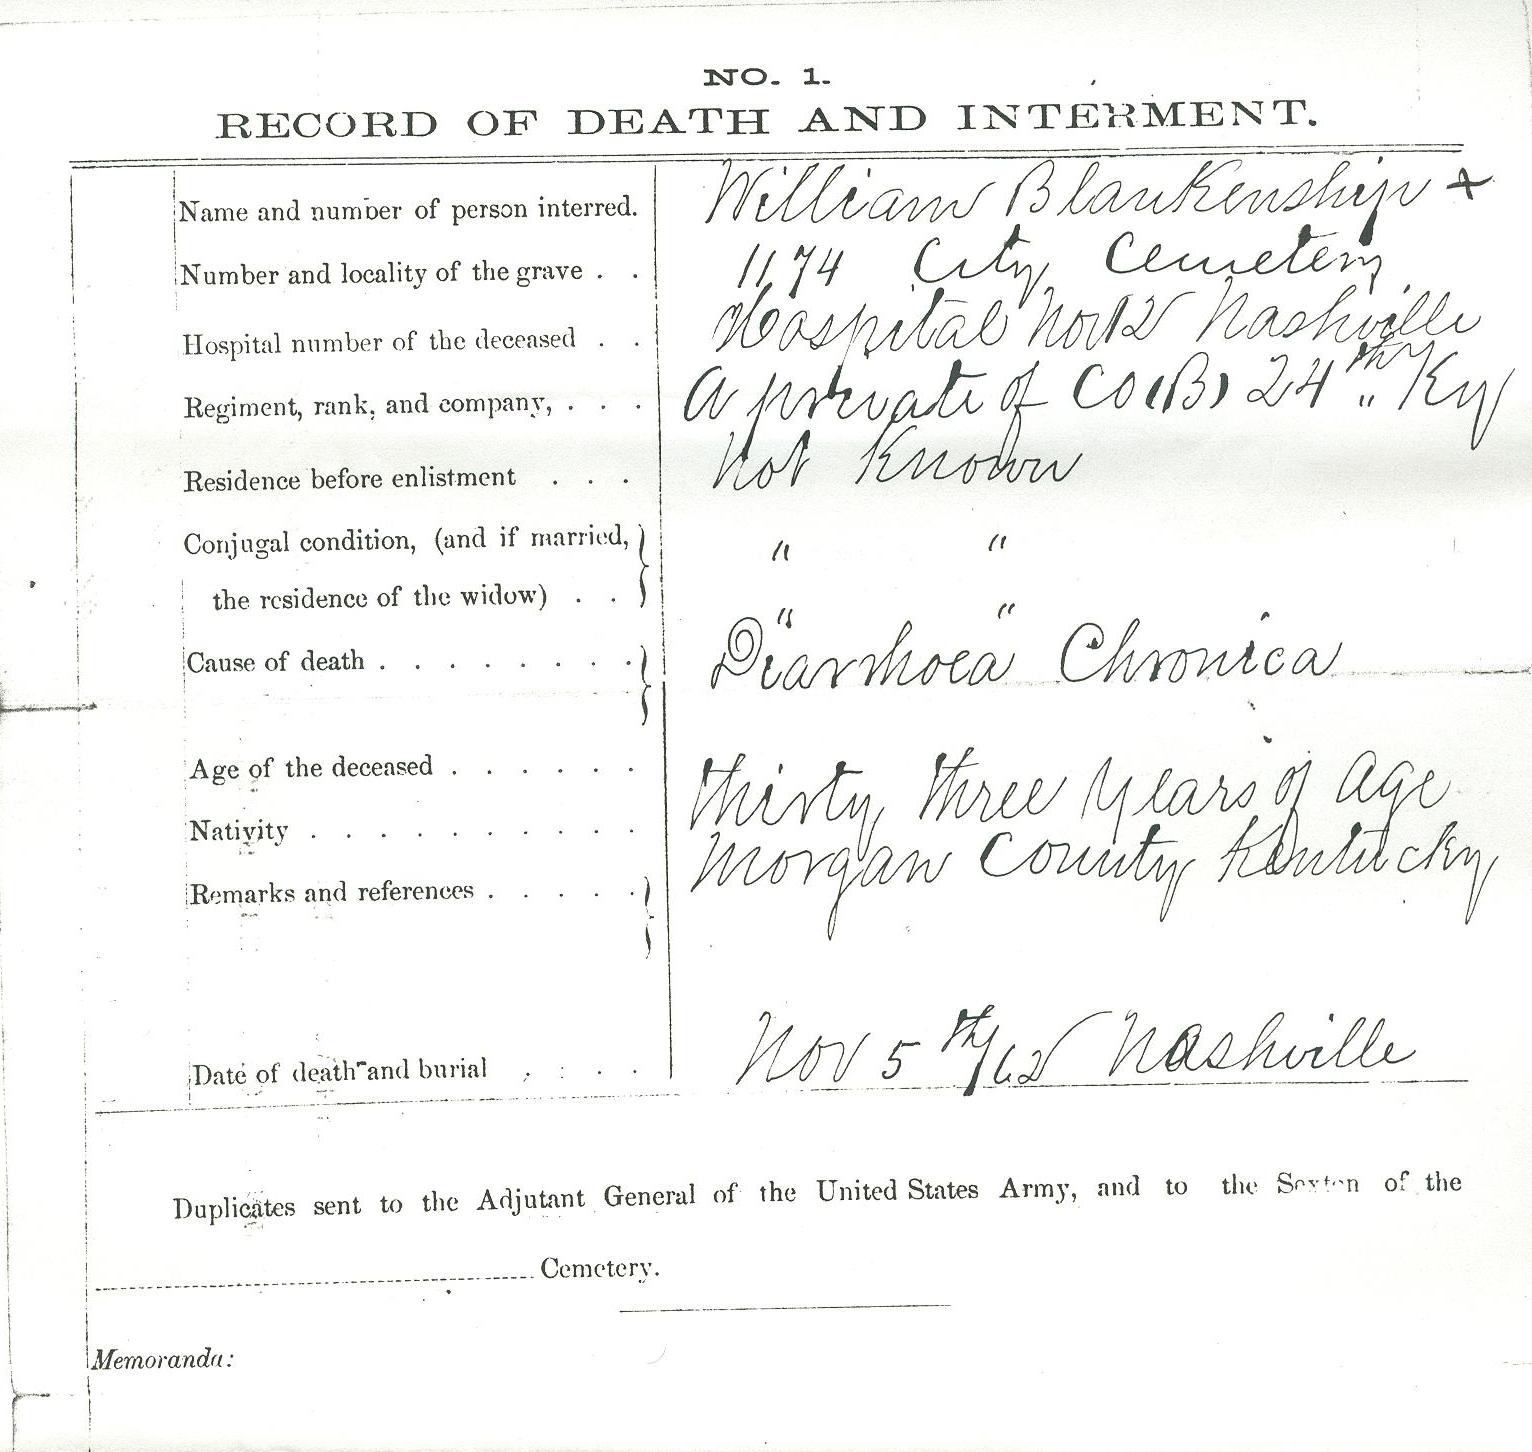 NO. 1.
RECORD OF DEATH AND INTERMENT.
Name and number of person interred. William Blankenship +
Number and locality of the grave . . 1174 City Cemetery
Hospital number of the deceased . . Hospital No 12 Nashville
Regiment, rank, and company, . . . A private of Co (B) 24th Ky
Residence before enlistment . . . Not Known
Conjugal condition, (and if married, } " "
the residence of the widow) . . } " "
Cause of death . . . . . . . . } Diarrhoea Chronica
Age of the deceased . . . . . . Thirty three Years of Age
Nativity . . . . . . . . . . Morgan County Kentucky
Remarks and references . . . . . }
Date of death and burial . . . . Nov 5th/62 Nashville
Duplicates sent to the Adjutant General of the United States Army, and to the Sexton of the
Cemetery.
Memoranda: